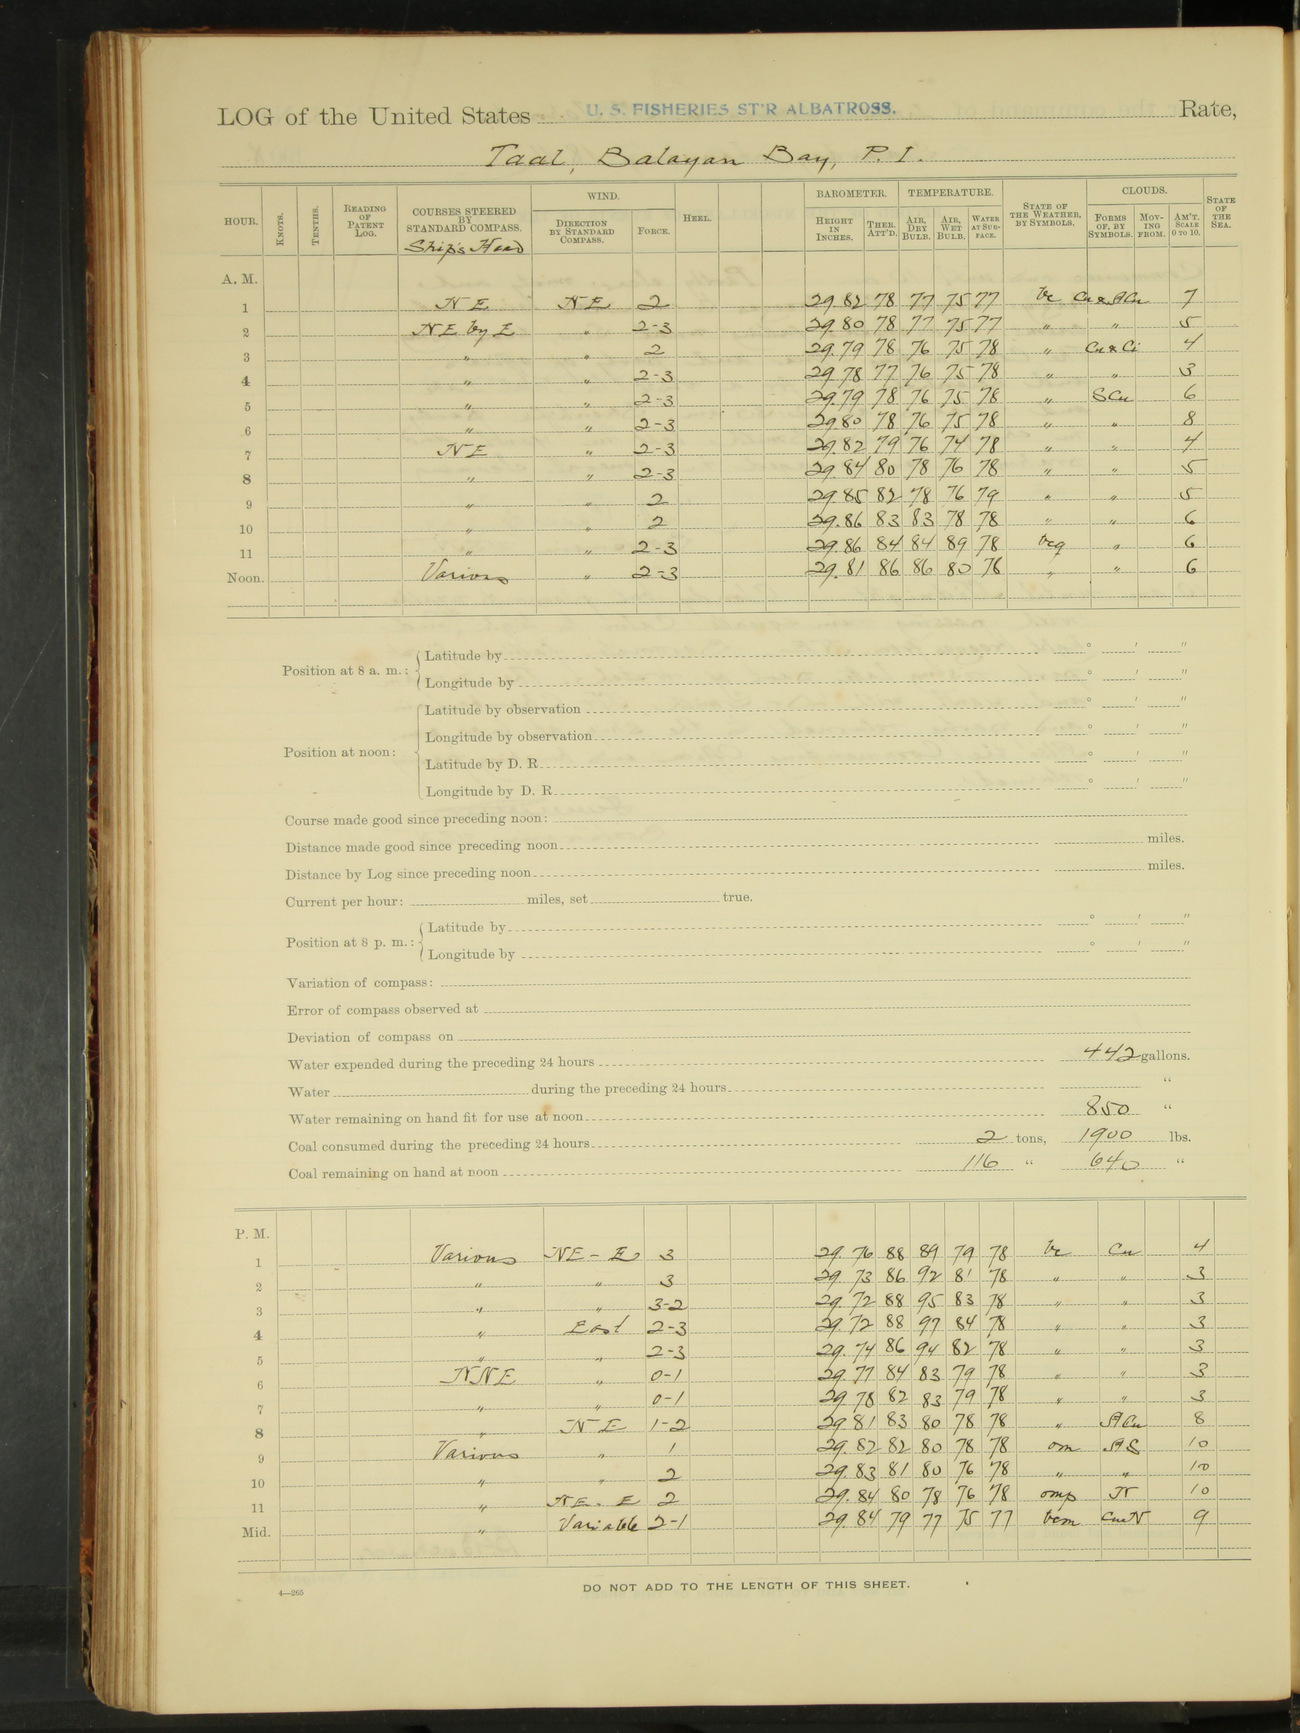 LOG of the United States U. S. FISHERIES ST'R ALBATROSS. Rate,
Taal, Balayan Bay, P. I.
HOUR. KNOTS. TENTHS. READING OF PATENT LOG. COURSES STEERED BY STANDARD COMPASS. Ship's Head WIND. DIRECTION BY STANDARD COMPASS. FORCE. HEEL. BAROMETER. HEIGHT IN INCHES. THER. ATT'D. TEMPERATURE. AIR, DRY BULB. AIR, WET BULB. WATER AT SURFACE. STATE OF THE WEATHER, BY SYMBOLS. CLOUDS. FORMS OF, BY SYMBOLS. MOVING FROM. AM'T. SCALE 0 TO 10. STATE OF THE SEA.
A. M.
1 NE NE 2 29.82 78 77 75 77 bc Cu & SCu 7
2 NE by E " 2-3 29.80 78 77 75 77 " " 5
3 " " 2 29.79 78 76 75 78 " Cu & Ci 4
4 " " 2-3 29.78 77 76 75 78 " " 3
5 " " 2-3 29.79 78 76 75 78 " SCu 6
6 " " 2-3 29.80 78 76 75 78 " " 8
7 NE " 2-3 29.82 79 76 74 78 " " 4
8 " " 2-3 29.84 80 78 76 78 " " 5
9 " " 2 29.85 82 78 76 79 " " 5
10 " " 2 29.86 83 83 78 78 " " 6
11 " " 2-3 29.86 84 84 89 78 bcq " 6
Noon. Various " 2-3 29.81 86 86 80 78 " " 6
Position at 8 a. m.: Latitude by ° ' "
Longitude by ° ' "
Position at noon: Latitude by observation ° ' "
Longitude by observation ° ' "
Latitude by D. R. ° ' "
Longitude by D. R. ° ' "
Course made good since preceding noon:
Distance made good since preceding noon miles.
Distance by Log since preceding noon miles.
Current per hour: miles, set true.
Position at 8 p. m.: Latitude by ° ' "
Longitude by ° ' "
Variation of compass:
Error of compass observed at
Deviation of compass on
Water expended during the preceding 24 hours 442 gallons.
Water during the preceding 24 hours "
Water remaining on hand fit for use at noon 850 "
Coal consumed during the preceding 24 hours 2 tons, 1900 lbs.
Coal remaining on hand at noon 116 " 640 "
P. M.
1 Various NE-E 3 29.76 88 89 79 78 bc Cu 4
2 " " 3 29.73 86 92 81 78 " " 3
3 " " 3-2 29.72 88 95 83 78 " " 3
4 " East 2-3 29.72 88 97 84 78 " " 3
5 " " 2-3 29.74 86 94 82 78 " " 3
6 NNE " 0-1 29.77 84 83 79 78 " " 3
7 " " 0-1 29.78 82 83 79 78 " " 3
8 " NE 1-2 29.81 83 80 78 78 " ACu 8
9 Various " 1 29.82 82 80 78 78 om AS 10
10 " " 2 29.83 81 80 76 78 " " 10
11 " NE-E 2 29.84 80 78 76 78 omp N 10
Mid. " Variable 2-1 29.84 79 77 75 77 bcm Cu&N 9
4—265
DO NOT ADD TO THE LENGTH OF THIS SHEET.